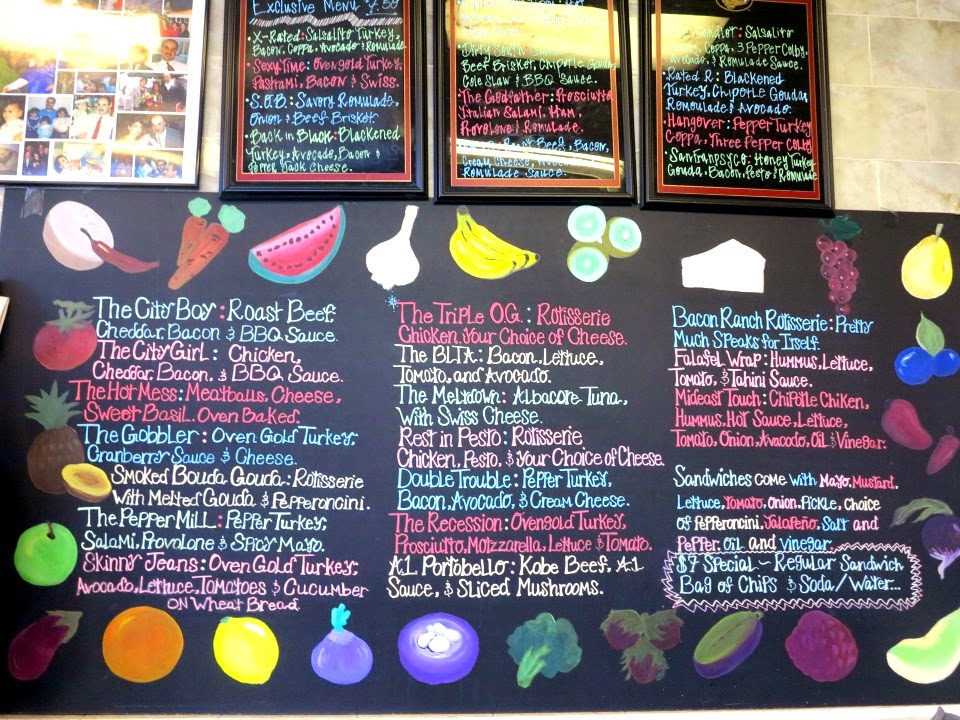 Exclusive Menu 7.50
• X-Rated: Salsalito Turkey,
Bacon, Coppa, Avocado & Romulade.
• Sexy Time: Ovengold Turkey,
Pastrami, Bacon & Swiss.
• S.O.B: Savory Romulade,
Onion & Beef Brisket.
• Back in Black: Blackened
Turkey, Avocado, Bacon &
Pepper Jack Cheese.
Beef Brisket, Chipotle Gouda,
Cole Slaw & BBQ Sauce.
• The Godfather: Prosciutto,
Italian Salami, Ham,
Provolone & Romulade.
Roast Beef, Bacon,
Cream Cheese, Avocado &
Romulade Sauce.
Salsalito
Turkey, Coppa, 3 Pepper Colby,
Avocado, & Romulade Sauce.
• Rated R: Blackened
Turkey, Chipotle Gouda,
Romoulade & Avocado.
• Hangover: Pepper Turkey
Coppa, Three Pepper Colby
• Sanfranpsyco: Honey Turkey
Gouda, Bacon, Pesto & Romulade
The City Boy: Roast Beef,
Cheddar, Bacon & BBQ Sauce.
The City Girl: Chicken,
Cheddar, Bacon, & BBQ Sauce.
The Hot Mess: Meatballs, Cheese,
Sweet Basil. Oven Baked.
The Gobbler: Oven Gold Turkey,
Cranberry Sauce & Cheese.
Smoked Bouda Gouda: Rotisserie
With Melted Gouda & Pepperoncini.
The Pepper Mill: Pepper Turkey,
Salami, Provolone & Spicy Mayo.
Skinny Jeans: Oven Gold Turkey,
Avocado, Lettuce, Tomatoes & Cucumber
on Wheat Bread
*The Triple O.G.: Rotisserie
Chicken, Your Choice of Cheese.
The BLTA: Bacon, Lettuce,
Tomato, and Avocado.
The Meltdown: Albacore Tuna,
With Swiss Cheese.
Rest in Pesto: Rotisserie
Chicken, Pesto, & Your Choice of Cheese.
Double Trouble: Pepper Turkey,
Bacon, Avocado, & Cream Cheese.
The Recession: Ovengold Turkey,
Prosciutto, Motzzarella, Lettuce & Tomato.
A.1. Portobello: Kobe Beef, A.1
Sauce, & Sliced Mushrooms.
Bacon Ranch Rotisserie: Pretty
Much Speaks for Itself.
Falafel Wrap: Hummus, Lettuce,
Tomato, & Tahini Sauce.
Mideast Touch: Chipotle Chiken,
Hummus, Hot Sauce, Lettuce,
Tomato, Onion, Avacado, Oil & Vinegar.
Sandwiches come with Mayo, Mustard,
Lettuce, Tomato, Onion, Pickle, choice
of Pepperoncini, Jalapeño, Salt and
Pepper, Oil and Vinegar.
$7 Special ~ Regular Sandwich
Bag of Chips & Soda/Water...